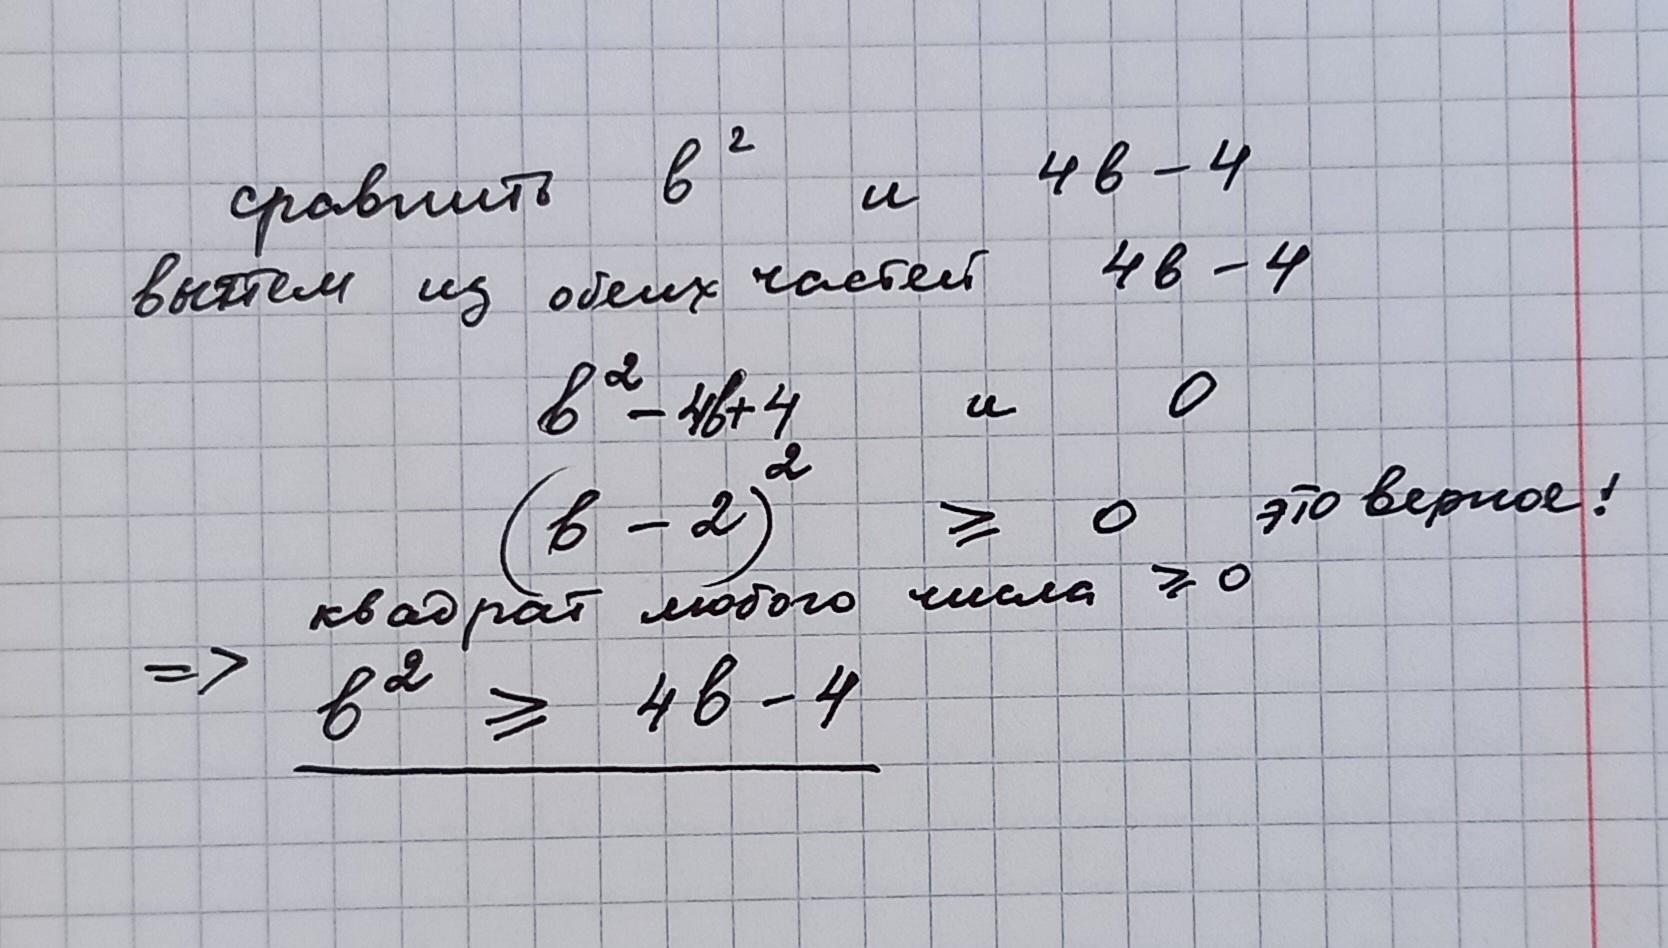 сравнить в² и 4в - 4
вычтем из обеих частей 4в - 4
в² - 4в + 4 и 0
(в - 2)² ⩾ 0 это верное!
квадрат любого числа ⩾ 0
=> в² ⩾ 4в - 4